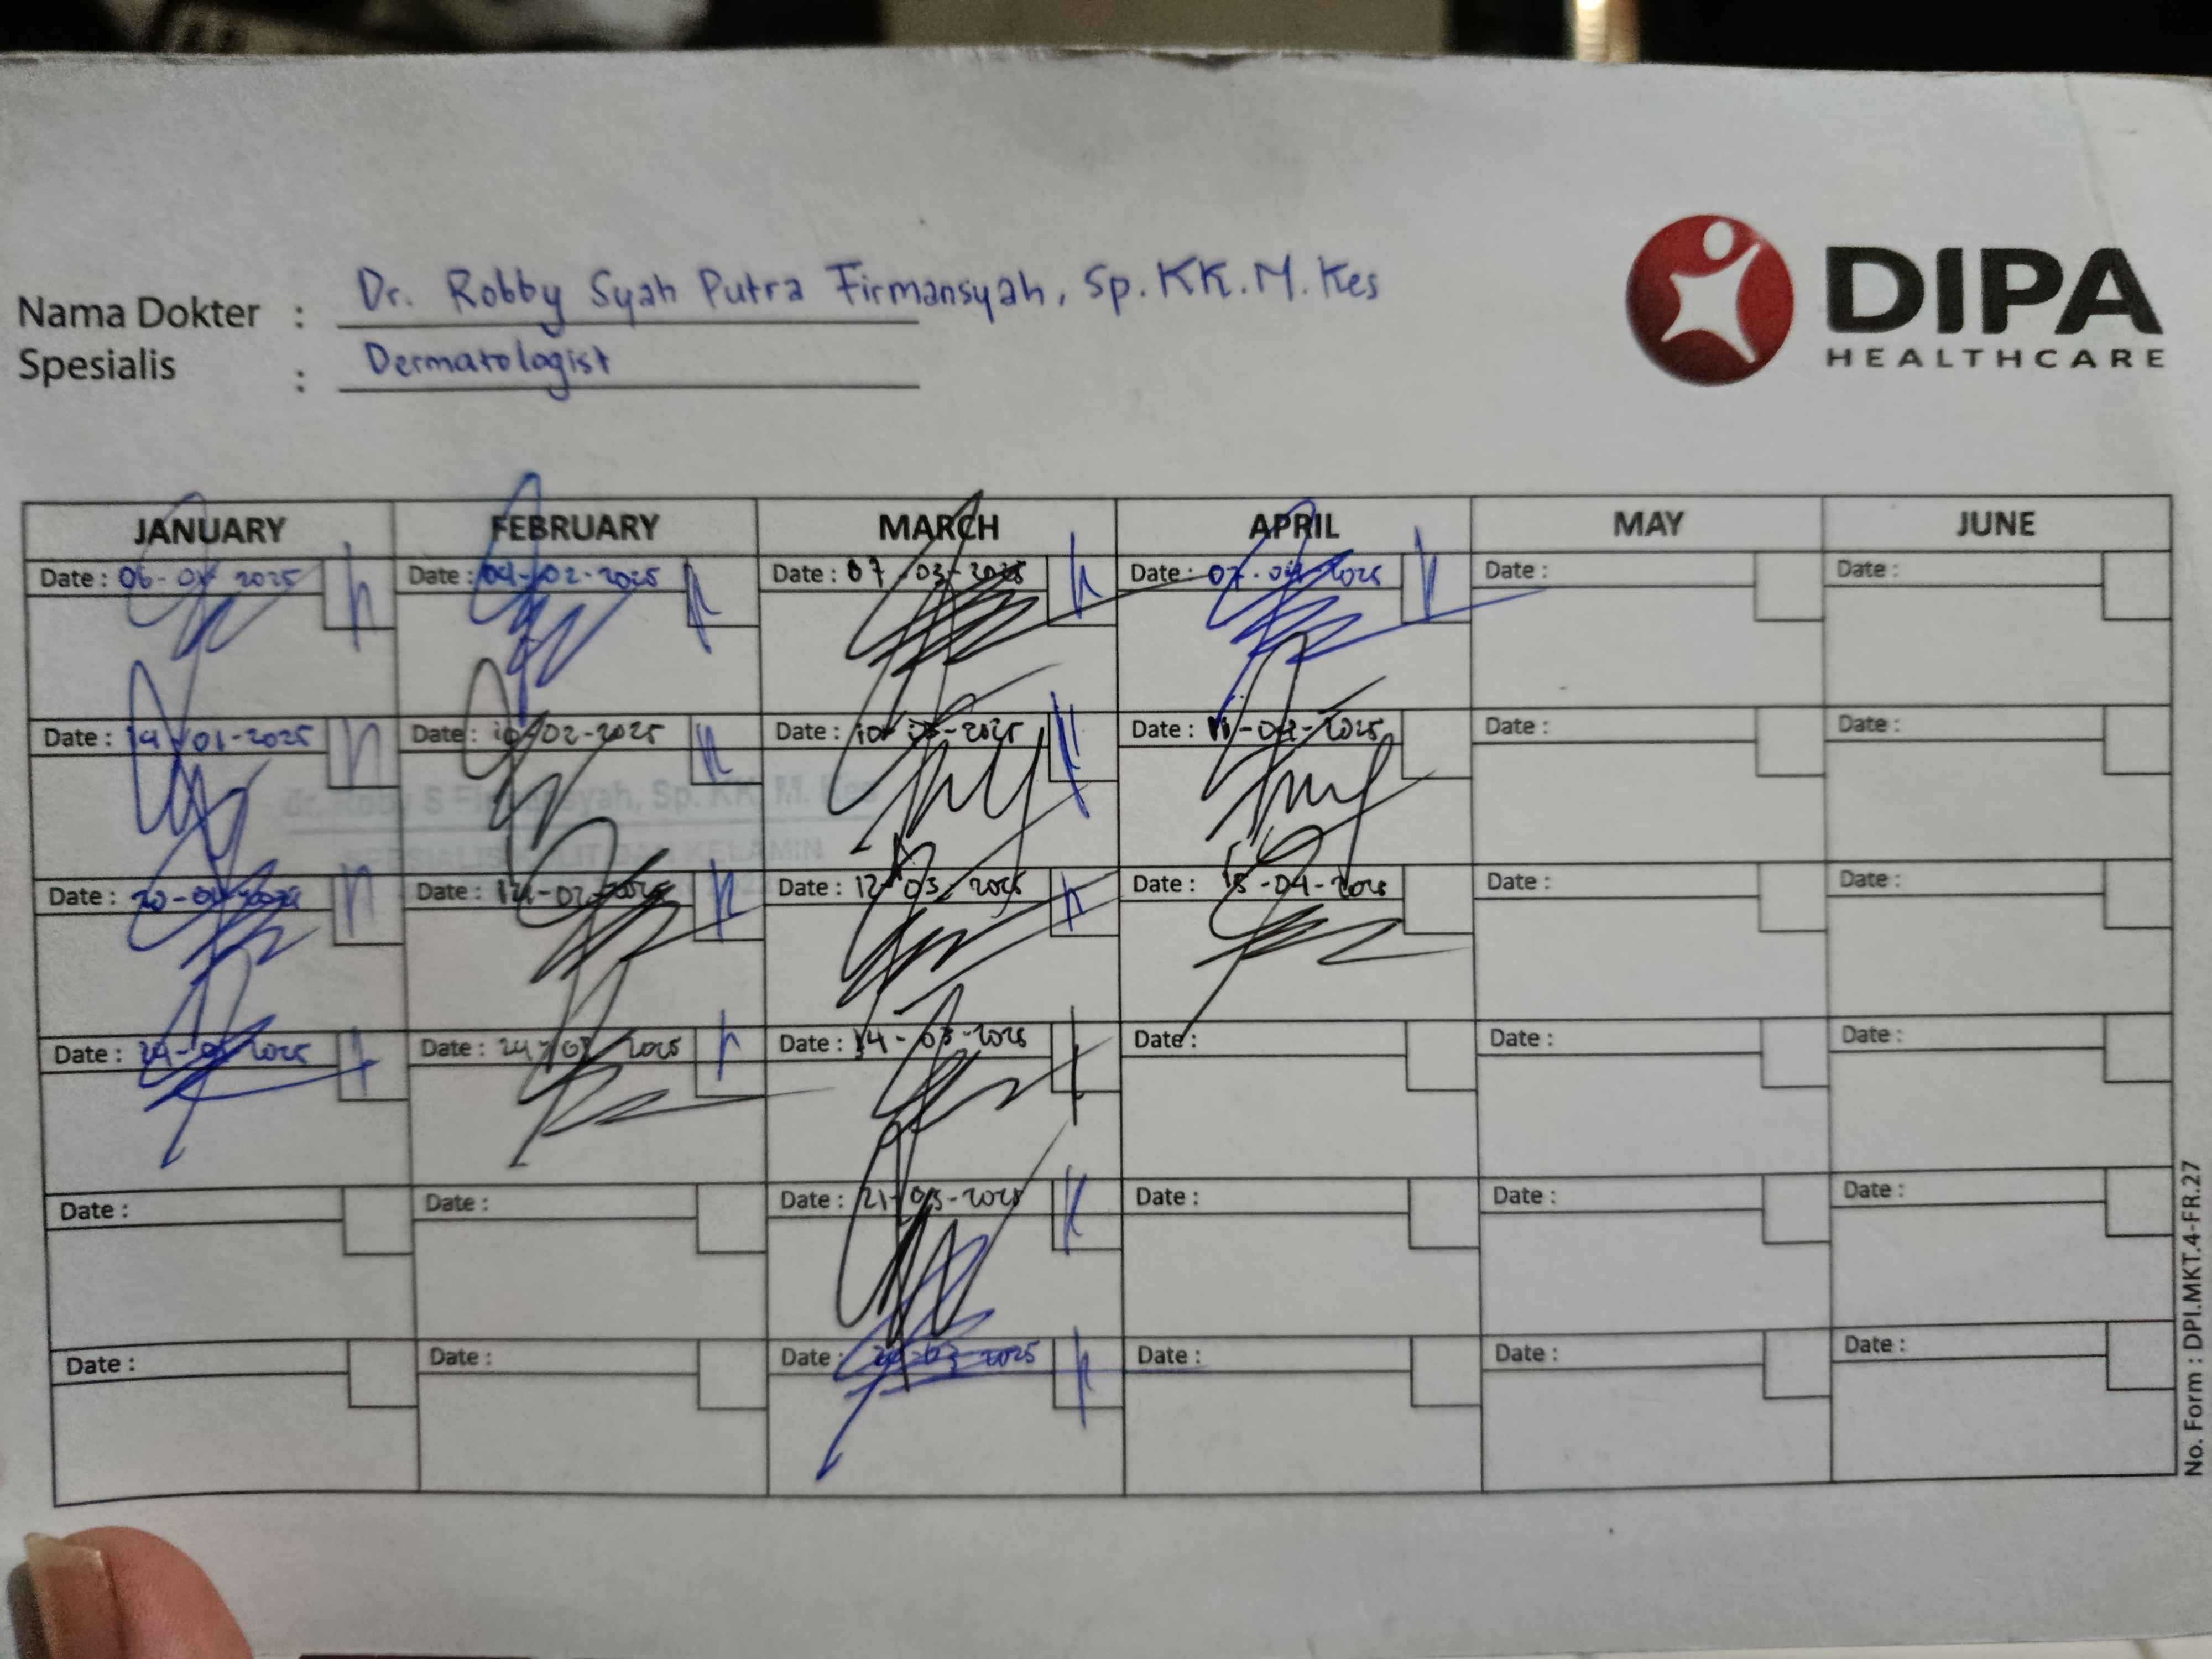 Nama Dokter : Dr. Robby Syah Putra Firmansyah, Sp.KK.M.Kes
Spesialis : Dermatologist
DIPA
HEALTHCARE
JANUARY FEBRUARY MARCH APRIL MAY JUNE
Date : 06-01-2025 Date : 04-02-2025 Date : 07-03-2025 Date : 07-04-2025 Date : Date :
Date : 14-01-2025 Date : 10-02-2025 Date : 10-03-2025 Date : 11-04-2025 Date : Date :
Date : 20-01-2025 Date : -02-2025 Date : 12-03-2025 Date : 15-04-2025 Date : Date :
Date : 24-01-2025 Date : 24-02-2025 Date : 14-03-2025 Date : Date : Date :
Date : Date : Date : 21-03-2025 Date : Date : Date :
Date : Date : Date : -03-2025 Date : Date : Date :
dr. Roby S Firmansyah, Sp. KK, M. Kes
No. Form : DPI.MKT.4-FR.27